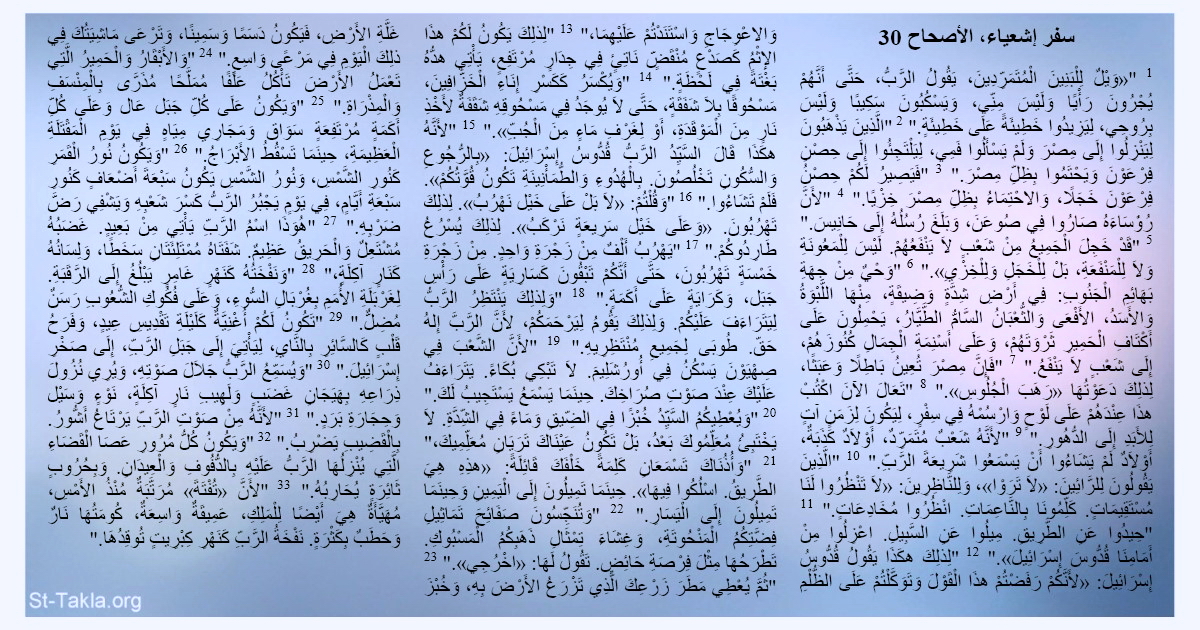 سفر إشعياء، الأصحاح 30
1 "«وَيْلٌ لِلْبَنِينَ الْمُتَمَرِّدِينَ، يَقُولُ الرَّبُّ، حَتَّى أَنَّهُمْ
يُجْرُونَ رَأْيًا وَلَيْسَ مِنِّي، وَيَسْكُبُونَ سَكِيبًا وَلَيْسَ
بِرُوحِي، لِيَزِيدُوا خَطِيئَةً عَلَى خَطِيئَةٍ." 2 "الَّذِينَ يَذْهَبُونَ
لِيَنْزِلُوا إِلَى مِصْرَ وَلَمْ يَسْأَلُوا فَمِي، لِيَلْتَجِئُوا إِلَى حِصْنِ
فِرْعَوْنَ وَيَحْتَمُوا بِظِلِّ مِصْرَ." 3 "فَيَصِيرُ لَكُمْ حِصْنُ
فِرْعَوْنَ خَجَلًا، وَالاحْتِمَاءُ بِظِلِّ مِصْرَ خِزْيًا." 4 "لأَنَّ
رُؤَسَاءَهُ صَارُوا فِي صُوعَنَ، وَبَلَغَ رُسُلُهُ إِلَى حَانِيسَ."
5 "قَدْ خَجِلَ الْجَمِيعُ مِنْ شَعْبٍ لاَ يَنْفَعُهُمْ. لَيْسَ لِلْمَعُونَةِ
وَلاَ لِلْمَنْفَعَةِ، بَلْ لِلْخَجَلِ وَلِلْخِزْيِ»." 6 "وَحْيٌ مِنْ جِهَةِ
بَهَائِمِ الْجَنُوبِ: فِي أَرْضِ شِدَّةٍ وَضِيقَةٍ، مِنْهَا اللَّبْوَةُ
وَالأَسَدُ، الأَفْعَى وَالثُّعْبَانُ السَّامُّ الطَّيَّارُ، يَحْمِلُونَ عَلَى
أَكْتَافِ الْحَمِيرِ ثَرْوَتَهُمْ، وَعَلَى أَسْنِمَةِ الْجِمَالِ كُنُوزَهُمْ،
إِلَى شَعْبٍ لاَ يَنْفَعُ." 7 "فَإِنَّ مِصْرَ تُعِينُ بَاطِلًا وَعَبَثًا،
لِذلِكَ دَعَوْتُهَا «رَهَبَ الْجُلُوسِ»." 8 "تَعَالَ الآنَ اكْتُبْ
هذَا عِنْدَهُمْ عَلَى لَوْحٍ وَارْسُمْهُ فِي سِفْرٍ، لِيَكُونَ لِزَمَنٍ آتٍ
لِلأَبَدِ إِلَى الدُّهُورِ." 9 "لأَنَّهُ شَعْبٌ مُتَمَرِّدٌ، أَوْلاَدٌ كَذَبَةٌ،
أَوْلاَدٌ لَمْ يَشَاءُوا أَنْ يَسْمَعُوا شَرِيعَةَ الرَّبِّ." 10 "الَّذِينَ
يَقُولُونَ لِلرَّائِينَ: «لاَ تَرَوْا»، وَلِلنَّاظِرِينَ: «لاَ تَنْظُرُوا لَنَا
مُسْتَقِيمَاتٍ. كَلِّمُونَا بِالنَّاعِمَاتِ. انْظُرُوا مُخَادِعَاتٍ." 11
"حِيدُوا عَنِ الطَّرِيقِ. مِيلُوا عَنِ السَّبِيلِ. اعْزِلُوا مِنْ
أَمَامِنَا قُدُّوسَ إِسْرَائِيلَ»." 12 "لِذلِكَ هكَذَا يَقُولُ قُدُّوسُ
إِسْرَائِيلَ: «لأَنَّكُمْ رَفَضْتُمْ هذَا الْقَوْلَ وَتَوَكَّلْتُمْ عَلَى الظُّلْمِ
وَالاعْوِجَاجِ وَاسْتَنَدْتُمْ عَلَيْهِمَا،" 13 "لِذلِكَ يَكُونُ لَكُمْ هذَا
الإِثْمُ كَصَدْعٍ مُنْقَضٍّ نَاتِئٍ فِي جِدَارٍ مُرْتَفِعٍ، يَأْتِي هَدُّهُ
بَغْتَةً فِي لَحْظَةٍ." 14 "وَيُكْسَرُ كَكَسْرِ إِنَاءِ الْخَزَّافِينَ،
مَسْحُوقًا بِلاَ شَفَقَةٍ، حَتَّى لاَ يُوجَدُ فِي مَسْحُوقِهِ شَقَفَةٌ لأَخْذِ
نَارٍ مِنَ الْمَوْقَدَةِ، أَوْ لِغَرْفِ مَاءٍ مِنَ الْجُبِّ»." 15 "لأَنَّهُ
هكَذَا قَالَ السَّيِّدُ الرَّبُّ قُدُّوسُ إِسْرَائِيلَ: «بِالرُّجُوعِ
وَالسُّكُونِ تَخْلُصُونَ. بِالْهُدُوءِ وَالطُّمَأْنِينَةِ تَكُونُ قُوَّتُكُمْ».
فَلَمْ تَشَاءُوا." 16 "وَقُلْتُمْ: «لاَ بَلْ عَلَى خَيْل نَهْرُبُ». لِذلِكَ
تَهْرُبُونَ. «وَعَلَى خَيْل سَرِيعَةٍ نَرْكَبُ». لِذلِكَ يُسْرُعُ
طَارِدُوكُمْ." 17 "يَهْرُبُ أَلْفٌ مِنْ زَجْرَةِ وَاحِدٍ. مِنْ زَجْرَةِ
خَمْسَةٍ تَهْرُبُونَ، حَتَّى أَنَّكُمْ تَبْقُونَ كَسَارِيَةٍ عَلَى رَأْسِ
جَبَل، وَكَرَايَةٍ عَلَى أَكَمَةٍ." 18 "وَلِذلِكَ يَنْتَظِرُ الرَّبُّ
لِيَتَرَاءَفَ عَلَيْكُمْ. وَلِذلِكَ يَقُومُ لِيَرْحَمَكُمْ، لأَنَّ الرَّبَّ إِلهُ
حَقّ. طُوبَى لِجَمِيعِ مُنْتَظِرِيهِ." 19 "لأَنَّ الشَّعْبَ فِي
صِهْيَوْنَ يَسْكُنُ فِي أُورُشَلِيمَ. لاَ تَبْكِي بُكَاءً. يَتَرَاءَفُ
عَلَيْكَ عِنْدَ صَوْتِ صُرَاخِكَ. حِينَمَا يَسْمَعُ يَسْتَجِيبُ لَكَ."
20 "وَيُعْطِيكُمُ السَّيِّدُ خُبْزًا فِي الضِّيقِ وَمَاءً فِي الشِّدَّةِ. لاَ
يَخْتَبِئُ مُعَلِّمُوكَ بَعْدُ، بَلْ تَكُونُ عَيْنَاكَ تَرَيَانِ مُعَلِّمِيكَ،"
21 "وَأُذُنَاكَ تَسْمَعَانِ كَلِمَةً خَلْفَكَ قَائِلَةً: «هذِهِ هِيَ
الطَّرِيقُ. اسْلُكُوا فِيهَا». حِينَمَا تَمِيلُونَ إِلَى الْيَمِينِ وَحِينَمَا
تَمِيلُونَ إِلَى الْيَسَارِ." 22 "وَتُنَجِّسُونَ صَفَائِحَ تَمَاثِيلِ
فِضَّتِكُمُ الْمَنْحُوتَةِ، وَغِشَاءَ تِمْثَالِ ذَهَبِكُمُ الْمَسْبُوكِ.
تَطْرَحُهَا مِثْلَ فِرْصَةِ حَائِضٍ. تَقُولُ لَهَا: «اخْرُجِي»." 23
"ثُمَّ يُعْطِي مَطَرَ زَرْعِكَ الَّذِي تَزْرَعُ الأَرْضَ بِهِ، وَخُبْزَ
غَلَّةِ الأَرْضِ، فَيَكُونُ دَسَمًا وَسَمِينًا، وَتَرْعَى مَاشِيَتُكَ فِي
ذلِكَ الْيَوْمِ فِي مَرْعًى وَاسِعٍ." 24 "وَالأَبْقَارُ وَالْحَمِيرُ الَّتِي
تَعْمَلُ الأَرْضَ تَأْكُلُ عَلَفًا مُمَلَّحًا مُذَرَّى بِالْمِنْسَفِ
وَالْمِذْرَاةِ." 25 "وَيَكُونُ عَلَى كُلِّ جَبَل عَال وَعَلَى كُلِّ
أَكَمَةٍ مُرْتَفِعَةٍ سَوَاق وَمَجَارِي مِيَاهٍ فِي يَوْمِ الْمَقْتَلَةِ
الْعَظِيمَةِ، حِينَمَا تَسْقُطُ الأَبْرَاجُ." 26 "وَيَكُونُ نُورُ الْقَمَرِ
كَنُورِ الشَّمْسِ، وَنُورُ الشَّمْسِ يَكُونُ سَبْعَةَ أَضْعَافٍ كَنُورِ
سَبْعَةِ أَيَّامٍ، فِي يَوْمٍ يَجْبُرُ الرَّبُّ كَسْرَ شَعْبِهِ وَيَشْفِي رَضَّ
ضَرْبِهِ." 27 "هُوَذَا اسْمُ الرَّبِّ يَأْتِي مِنْ بَعِيدٍ. غَضَبُهُ
مُشْتَعِلٌ وَالْحَرِيقُ عَظِيمٌ. شَفَتَاهُ مُمْتَلِئَتَانِ سَخَطًا، وَلِسَانُهُ
كَنَارٍ آكِلَةٍ،" 28 "وَنَفْخَتُهُ كَنَهْرٍ غَامِرٍ يَبْلُغُ إِلَى الرَّقَبَةِ.
لِغَرْبَلَةِ الأُمَمِ بِغُرْبَالِ السُّوءِ، وَعَلَى فُكُوكِ الشُّعُوبِ رَسَنٌ
مُضِلٌّ." 29 "تَكُونُ لَكُمْ أُغْنِيَّةٌ كَلَيْلَةِ تَقْدِيسِ عِيدٍ، وَفَرَحُ
قَلْبٍ كَالسَّائِرِ بِالنَّايِ، لِيَأْتِيَ إِلَى جَبَلِ الرَّبِّ، إِلَى صَخْرِ
إِسْرَائِيلَ." 30 "وَيُسَمِّعُ الرَّبُّ جَلاَلَ صَوْتِهِ، وَيُرِي نُزُولَ
ذِرَاعِهِ بِهَيَجَانِ غَضَبٍ وَلَهِيبِ نَارٍ آكِلَةٍ، نَوْءٍ وَسَيْل
وَحِجَارَةِ بَرَدٍ." 31 "لأَنَّهُ مِنْ صَوْتِ الرَّبِّ يَرْتَاعُ أَشُّورُ.
بِالْقَضِيبِ يَضْرِبُ." 32 "وَيَكُونُ كُلُّ مُرُورِ عَصَا الْقَضَاءِ
الَّتِي يُنْزِلُهَا الرَّبُّ عَلَيْهِ بِالدُّفُوفِ وَالْعِيدَانِ. وَبِحُرُوبٍ
ثَائِرَةٍ يُحَارِبُهُ." 33 "لأَنَّ «تُفْتَةَ» مُرَتَّبَةٌ مُنْذُ الأَمْسِ،
مُهَيَّأَةٌ هِيَ أَيْضًا لِلْمَلِكِ، عَمِيقَةٌ وَاسِعَةٌ، كُومَتُهَا نَارٌ
وَحَطَبٌ بِكَثْرَةٍ. نَفْخَةُ الرَّبِّ كَنَهْرِ كِبْرِيتٍ تُوقِدُهَا."
St-Takla.org